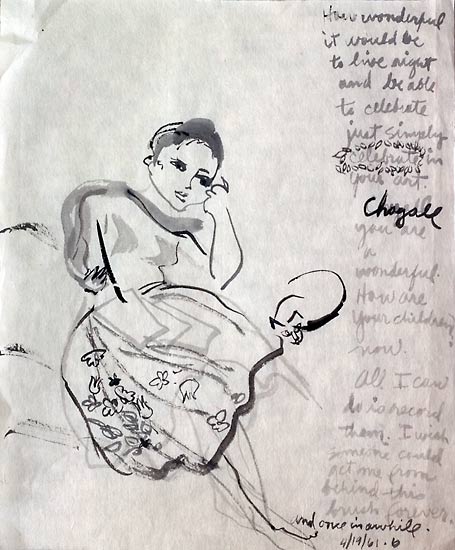 How wonderful
it would be
to live right
and be able
to celebrate
just simply
celebrate in
your art.
Chagall
you are
a
wonderful.
How are
your children
now.
All I can
do is record
them. I wish
someone could
get me from
behind this
brush forever.
and once in awhile.
4/19/61.b